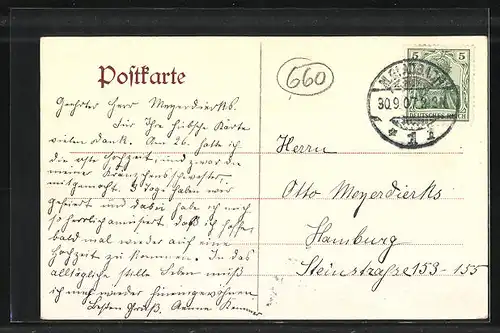 Postkarte
660
30.9.07
5 5
DEUTSCHES REICH
* 1
Geehrter Herr Meyerdierks.
Für Ihre hübsche Karte
vielen Dank. Am 26. hatte ich
die erste Hochzeit und zwar die
meiner Kränzchensschwester,
mitgemacht. 3 Tage haben wir
gefeiert und dabei habe ich mich
so herrlich amüsiert, daß ich hoffe
bald mal wieder auf eine
Hochzeit zu kommen. In das
alltägliche stille Leben muß
ich mich wieder hineingewöhnen
Besten Gruß. Aenne
Herrn
Otto Meyerdierks
Hamburg
Steinstrasse 153-155